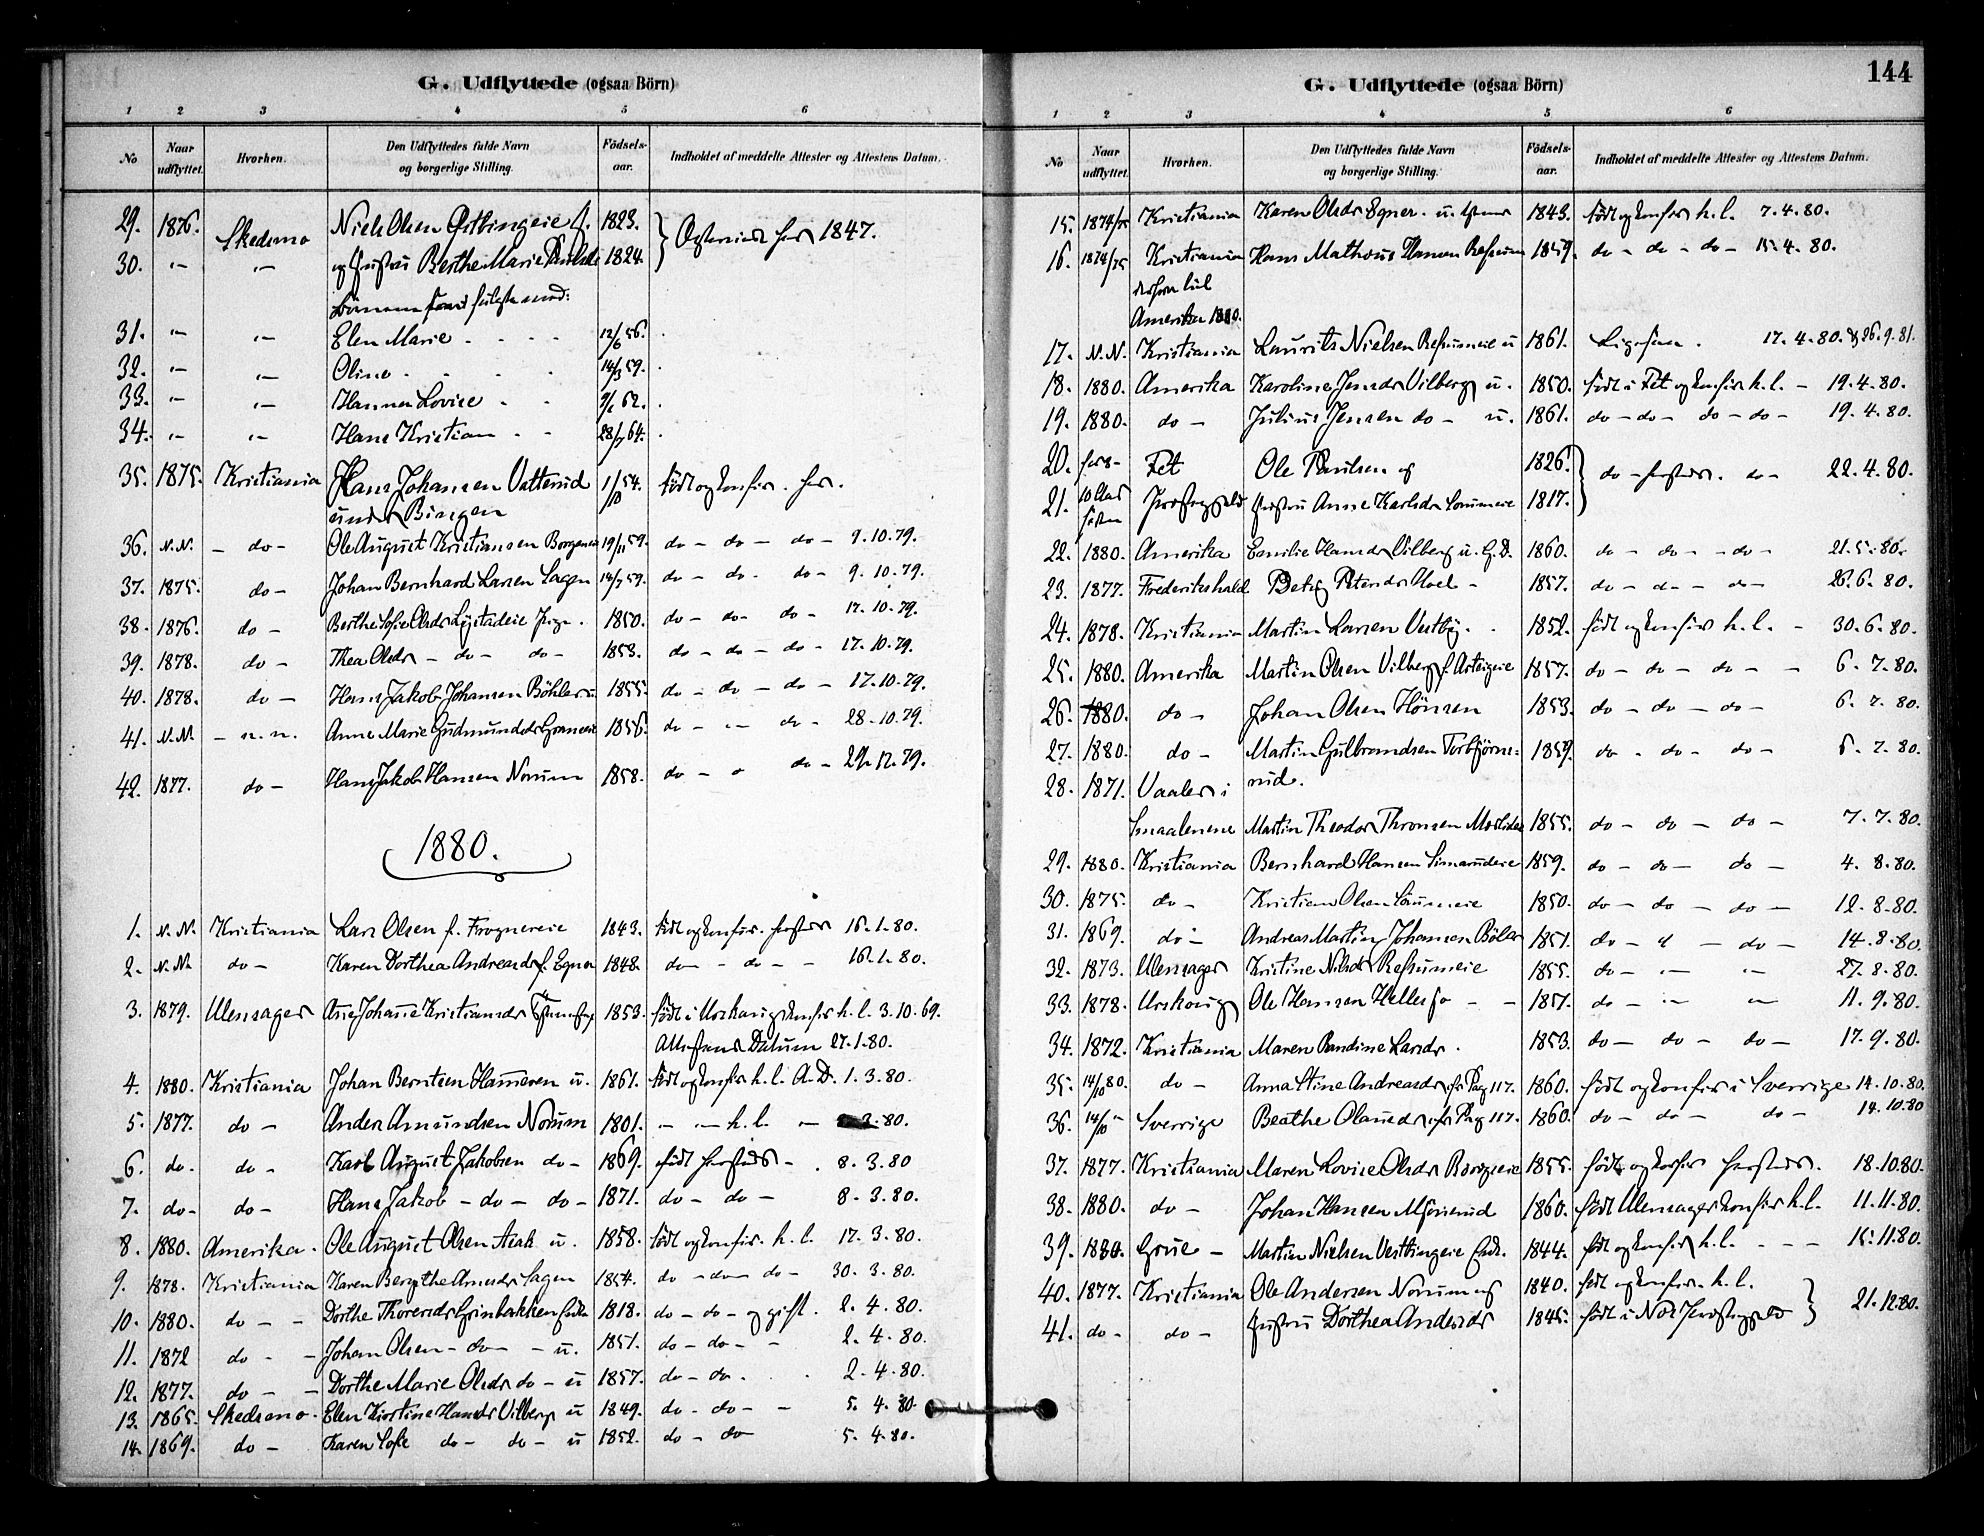 G. Udflyttede (ogsaa Börn)
1 2 3 4 5 6
No Naar udflyttet. Hvorhen. Den Udflyttedes fulde Navn og borgerlige Stilling. Fødsels-aar. Indholdet af meddelte Attester og Attestens Datum.
29. 1876. Skedsmo Niels Olsen 1823. 1847.
30. " " og Hustru Berthe Marie 1824.
Börnene
31. " " Elen Marie 12/6 56.
32. " " Oline 14/3 59.
33. " " Hanna Lovise 62.
34. " " Hans Kristian 28/7 64.
35. 1875. Kristiania Hans Johansen Vatterud 1/10 54. født og konfir. her.
under Bingen
36. N.N. - do - Ole August Kristiansen 19/11 59. do - do - do - 9.10.79.
37. 1875. do - Johan Bernhard Larsen Sagen 14/7 59. do - do. do - 9.10.79.
38. 1876. do - Berthe Sofie Olsdr 1850. do - do - do - 17.10.79.
39. 1878. do - Thea Olsdr - do - do - 1853. do - do - do - 17.10.79.
40. 1878. do - Hans Jakob Johansen Böhler 1855. do - do - do - 17.10.79.
41. N.N. - n.n. Anne Marie Gudmundsdr 1856. do - " do - 28.10.79.
42. 1877. do - Hans Jakob Hansen Norum 1858. do - do - 12.79.
1880.
1. N.N. Kristiania Lars Olsen f. Frognereie 1843. født og konfir. hersteds 16.1.80.
2. N.N. do - Karen Dorthea Andreasdr f. Egner 1848. do - do - - 16.1.80.
3. 1879. Ullensager Ane Johanne Kristiansdr 1853. født i Urskoug konfir h.l. 3.10.69.
Attestens Datum 27.1.80.
4. 1880. Kristiania Johan Berntsen Hammeren u. 1861. født og konfir h.l. A.D. 1.3.80.
5. 1877. do - Anders Amundsen Norum 1801. - " h.l. - 3.80.
6. do. do - Karl August Jakobsen do - 1869. født hersteds - . 8.3.80
7. do - do - Hans Jakob - do - do - 1871. do - do - 8.3.80.
8. 1880. Amerika. Ole August Olsen Aak u. 1858. født og konfir. h.l. 17.3.80.
9. 1878. Kristiania Karen Berthe Arnesdr Sagen 1854. do - do - do - 30.3.80.
10. 1880. do - - Dorthe Thoresdr Grinbakken Enke 1818. do - do - og gift. 2.4.80.
11. 1872 do - - Johan Olsen - do - - u. 1851. do - do - - 2.4.80.
12. 1877. do - - Dorthe Marie Olsdr do - u 1857. do - do. 2.4.80.
13. 1865. Skedsmo. Elen Kirstine Hansdr Vilberg u 1849. do - do - - 5.4.80.
14. 1869. do - Karen Sofie do - do - u 1852. do - do 5.4.80.
144
G. Udflyttede (ogsaa Börn)
1 2 3 4 5 6
No Naar udflyttet. Hvorhen. Den Udflyttedes fulde Navn og borgerlige Stilling. Fødsels-aar. Indholdet af meddelte Attester og Attestens Datum.
15. 1874/75 Kristiania Karen Olsdr Egner 1843. født og konfir h.l. 7.4.80.
16. 1874/75 Kristiania Hans Mathæus Hansen 1859. do - do - do - 15.4.80.
derfra til
Amerika 1880.
17. N.N. Kristiania Laurits Nielsen u 1861. Ligesaa. 17.4.80. & 26.9.81.
18. 1880. Amerika Karoline Jensdr Vilberg u. 1850. født i Fet og konfir h.l. - 19.4.80.
19. 1880. do - Julius Jensen do - u. 1861. do - do - do - do - 19.4.80.
20. Fet Ole Paulsen og 1826. do - hersteds. do - 22.4.80.
21. 10 Aar siden Præstegjeld Hustru Anne Karlsdr 1817.
22. 1880. Amerika Emilie Hansdr Vilberg u. G.D. 1860. do - do - - do - 21.5.80.
23. 1877. Frederikshald Petersdr - 1857. do - do - do - 26.6.80.
24. 1878. Kristiania Martin Larsen Vestby. 1852. født og konfir h.l. - 30.6.80.
25. 1880. Amerika Martin Olsen Vilberg f. 1857. do - do - do - - 6.7.80.
26. 1880. do - Johan Olsen Hönsen 1853. do - do - do - 6.7.80.
27. 1880. do - Martin Gulbrandsen Torbjörns- 1859. do - do - do - 6.7.80.
28. 1871. Vaaler i rud.
Smaalenene Martin Theodor Thronsen 1855. do - do - do - 7.7.80.
29. 1880. Kristiania Bernhard Hansen 1859. do - do - do - 4.8.80.
30. 1875. do - Kristian Olsen 1850. do - do - do - 12.8.80.
31. 1869. do - Andreas Martin Johansen Böler 1851. do - - do - 14.8.80.
32. 1873. Ullensager Kristine Nilsdr 1855. do - " " 27.8.80.
33. 1878. Urskoug Ole Hansen Hellesjø - - 1857. do - " " 11.9.80.
34. 1872. Kristiania Maren Randine Larsdr. 1853. do - do - do - 17.9.80.
35. 14/10 80. do - Anna Stine Andreasdr cfr Pag 117. 1860. født og konfir i Sverrige 14.10.80.
36. 14/10 " Sverrige Beathe Olausdr cfr Pag 117. 1860. do - do - do - 14.10.80
37. 1877. Kristiania Maren Lovise Olsdr 1855. født og konfir hersteds. 18.10.80.
38. 1880. do - Johan Hansen 1860. født Ullensager konfir h.l. 11.11.80.
39. 1880. Grue - Martin Nielsen Enk. 1844. født og konfir h.l. - - - 15.11.80.
40. 1877. Kristiania Ole Andersen Norum og 1840. født og konfir. h.l.
41. do - do - Hustru Dorthea Andersdr 1845. født i Nes Præstegjeld 21.12.80.